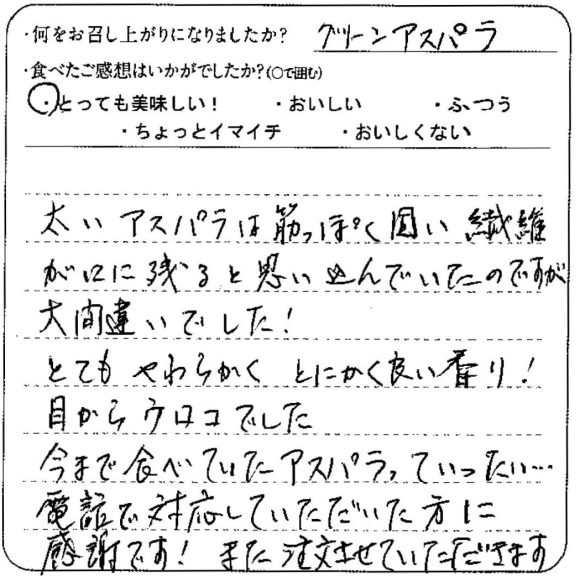 ・何をお召し上がりになりましたか? グリーンアスパラ
・食べたご感想はいかがでしたか?(○で囲む)
・とっても美味しい! ・おいしい ・ふつう
・ちょっとイマイチ ・おいしくない
太いアスパラは筋っぽく固い繊維
が口に残ると思い込んでいたのですが
大間違いでした!
とてもやわらかくとにかく良い香り!
目からウロコでした
今まで食べていたアスパラっていったい…
電話で対応していただいた方に
感謝です! また注文させていただきます